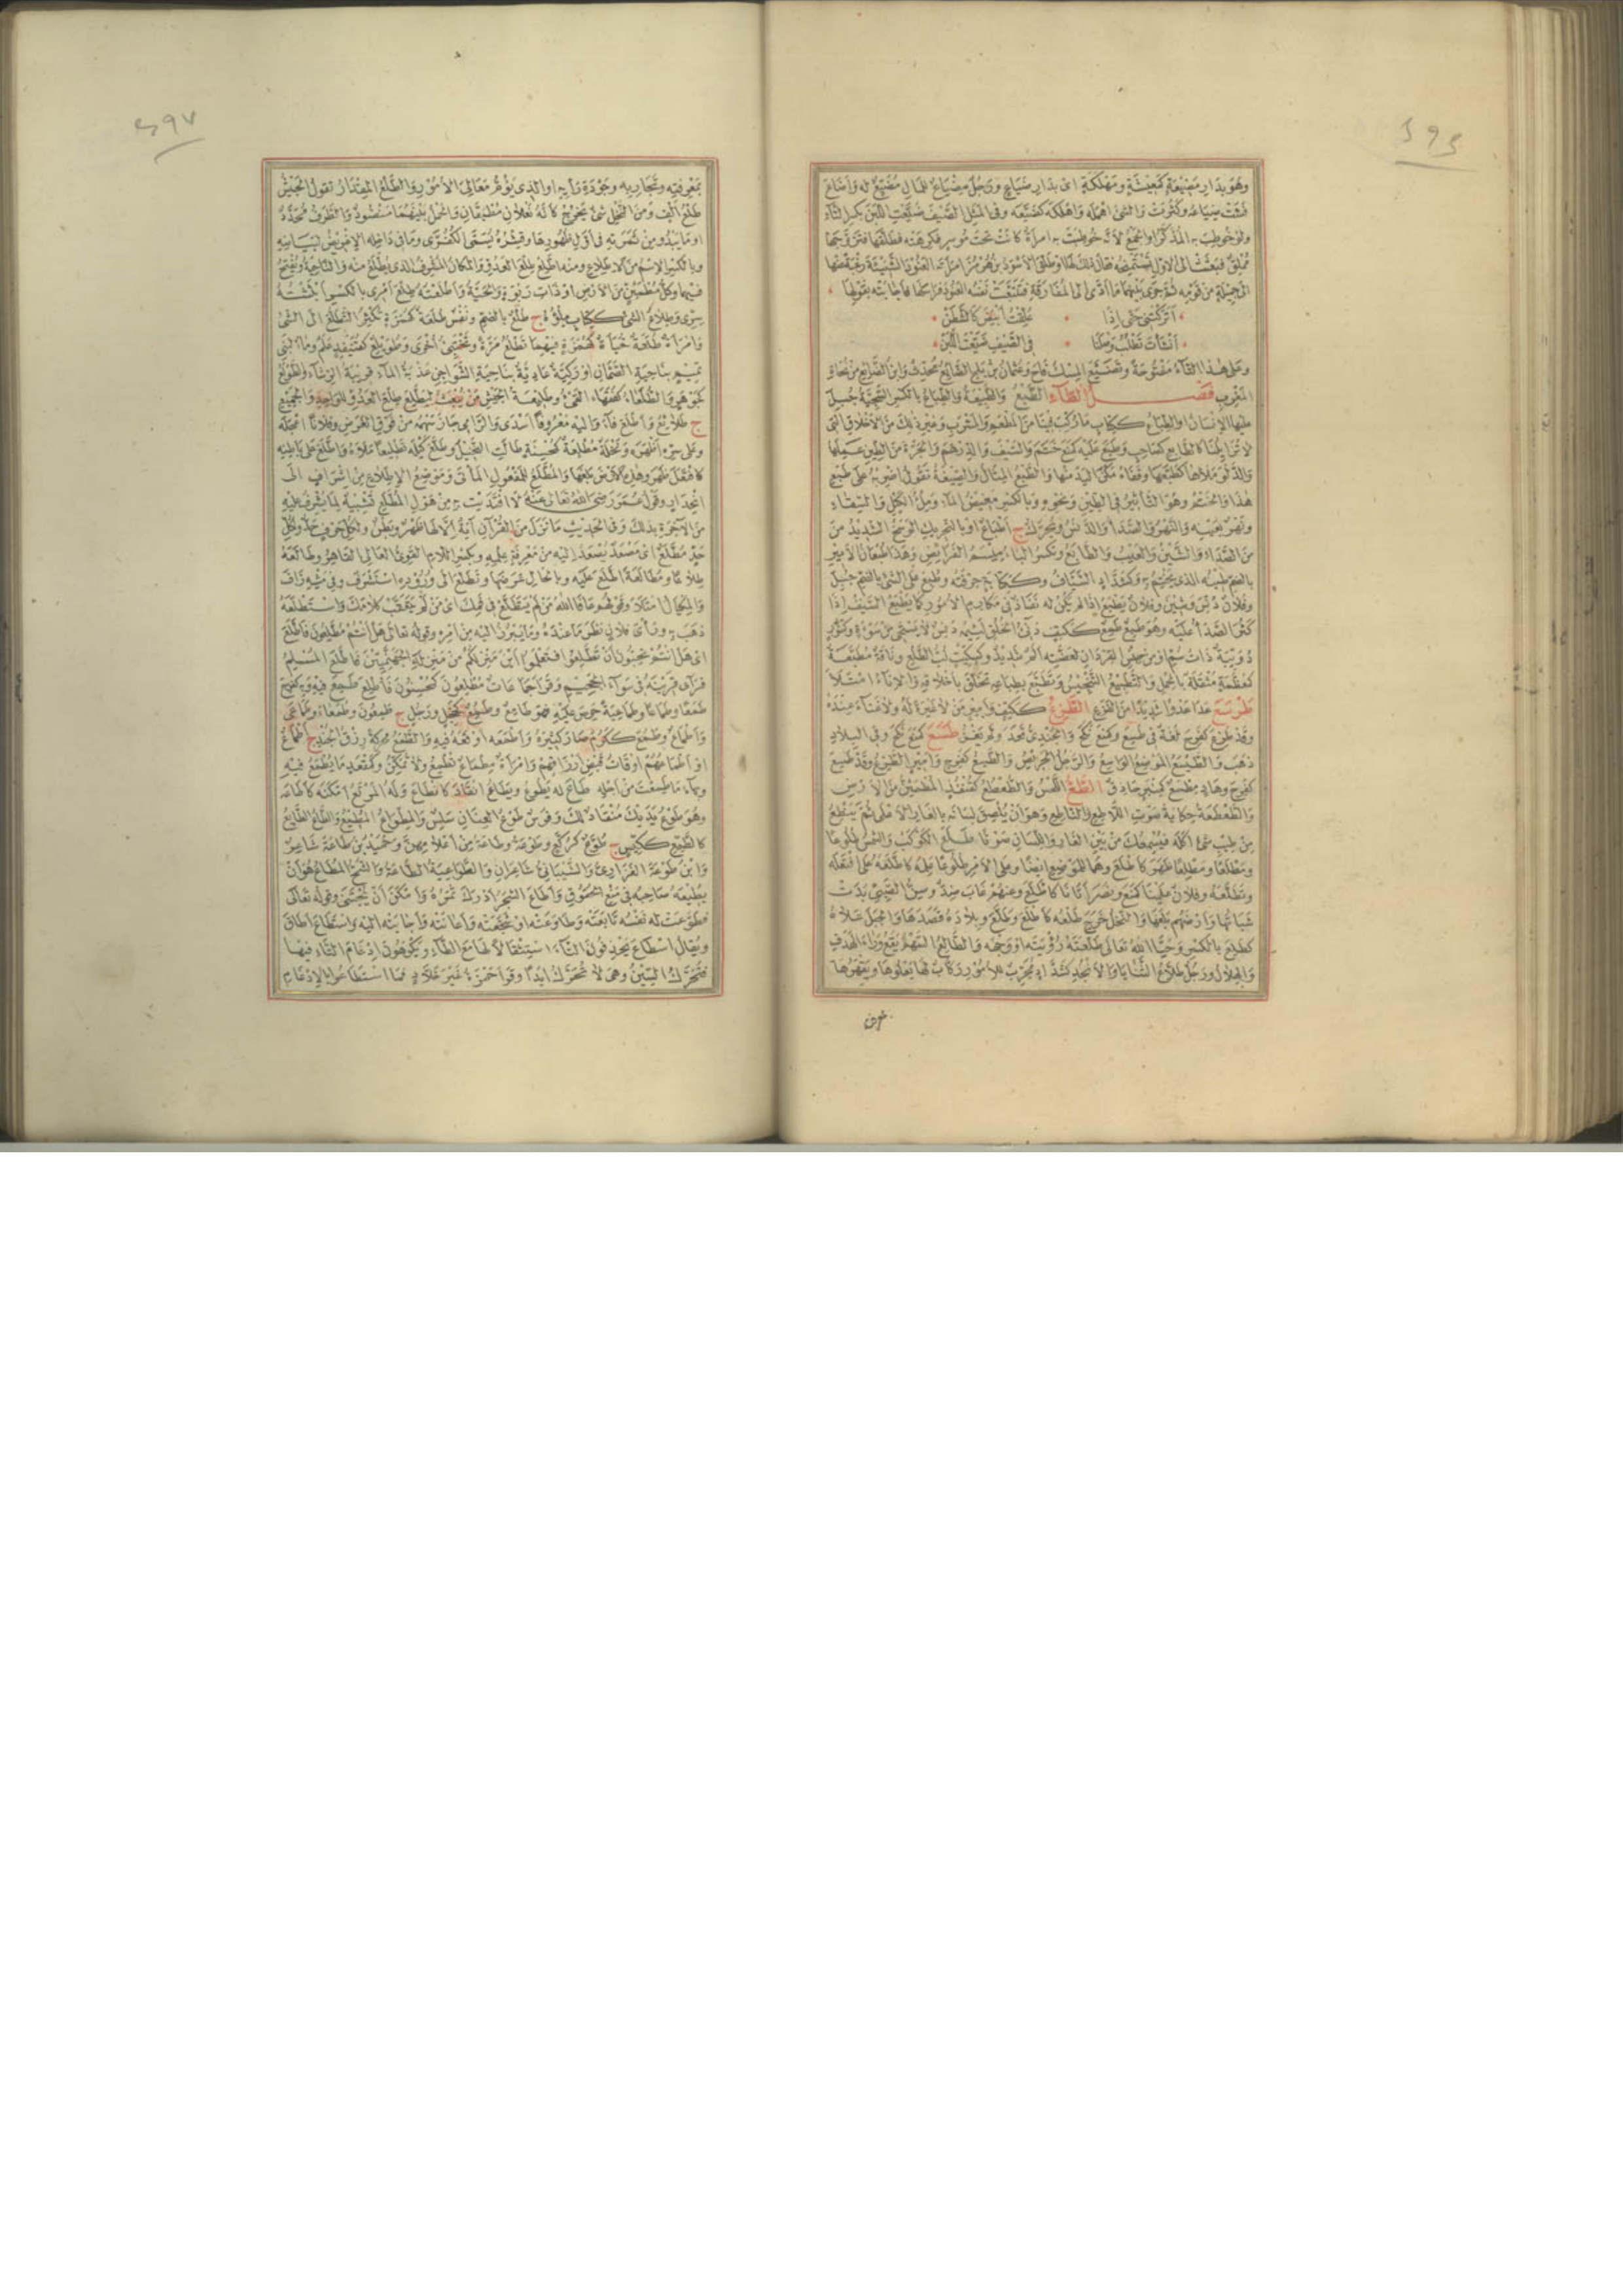 وهو بدار مضيعة كمعيشة ومهلكة اى بدار ضياع ورجل مضياع للمال مضيع له واضاع
فشت ضياعه وكثرت والشئ اهمله واهلكه كضيعه وفى المثل الصيف ضيعت اللبن بكسر التاء
ولو خوطب به المذكر او الجمع لانه خوطبت به امرأة كانت تحت موسر فكرهته فطلقها فتزوجها
مملق فبعثت الى الاول تستميحه فقال ذلك لها او طلق الاسود بن هرمز امرأته العنود الشنيئة رغبة عنها
الى جميلة من قومه ثم جرى بينهما ما ادى الى المفارقة فتتبعت نفسه العنود فراسلها فاجابته بقولها
أتركتنى حتى اذا علقت ابيض كالشطن
انشأت تطلب وصلنا فى الصيف ضيعت اللبن
وعلى هذا التاء مفتوحة وتضيع المسك فاح وعثمان بن بلج الضائع محدث وابن الضائع من نحاة
المغرب فصل الطاء الطبع والطبيعة والطباع بالكسر السجية جبل
عليها الانسان او الطباع ككتاب ما ركب فينا من المطعم والمشرب وغير ذلك من الاخلاق التى
لا تزايلنا كالطابع كصاحب وطبع عليه كمنع ختم والسيف والدرهم والجرة من الطين عملها
والدلو ملأها كطبعها وقفاه مكن اليد منها والطبع المثال والصيغة تقول اضربه على طبع
هذا والختم وهو التأثير فى الطين ونحوه وبالكسر مغيض الماء وملء الكيل والسقاء
ونهر بعينه والنهر والصدأ والدنس ويحرك ج اطباع او بالتحريك الوسخ الشديد من
من الصداء والشين والعيب والطابع وتكسر الباء ميسم الفرائض وهذا طبعان الامير
بالضم طينه الذى يختم به وكشداد السياف وككتابة حرفته وطبع على الشئ بالضم جبل
وفلان دنس وشين وفلان يطبع اذا لم يكن له نفاذ فى مكارم الامور كما يطبع السيف اذا
كثر الصدأ عليه وهو طبع طمع ككتف دنئ الخلق لئيمه دنس لا يستحى من سوءة وكتنور
دويبة ذات سم او من جنس القردان لعضته الم شديد وكسكيت لب الطلع وناقة مطبعة
كمعظمة مثقلة بالحمل والتطبيع التنجيس وتطبع بطباعه تخلق باخلاقه والاناء امتلأ
طرسع عدا عدوا شديدا من الفزع الطزع ككتف وامير من لا غيرة له ولا غناء عنده
وقد طزع كفرح لغة فى طسع وكمنع نكح والجندى قعد ولم يغز طسع كمنع نكح وفى البلاد
ذهب والطيسع الموضع الواسع والرجل الحريص والطسع كفرح وامير الطزع وقد طسع
كفرح وهاد مطسع كمنبر حاذق الطع اللحس والطعطع كفدفد المطمئن من الارض
والطعطعة حكاية صوت اللاطع والناطع وهو ان يلصق لسانه بالغار الاعلى ثم ينطع
من طيب شئ اكله فيسمعك من بين الغار واللسان صوتا طلع الكوكب والشمس طلوعا
ومطلعا ومطلعا ظهر كاطلع وهما للموضع ايضا وعلى الامر طلوعا علمه كاطلعه على افتعله
وتطلعه وفلان علينا كمنع ونصر اتانا كاطلع وعنهم غاب ضد وسن الصبى بدت
شباتها وارضهم بلغها والنخل خرج طلعه كاطلع وطلع وبلاده قصدها والجبل علاه
كطلع بالكسر وحيا الله تعالى طلعته رؤيته او وجهه والطالع السهم يقع وراء الهدف
والهلال ورجل طلاع الثنايا والانجد كشداد مجرب للامور ركاب لها يعلوها ويقهرها
بمعرفته وتجاربه وجودة رأيه او الذى يؤم معالى الامور والطلع المقدار تقول الجيش
طلع الف ومن النخل شئ يخرج كانه نعلان مطبقان والحمل بينهما منضود والطرف محدد
او ما يبدو من ثمرته فى اول ظهورها وقشره يسمى الكفرى وما فى داخله الاغريض لبياضه
وبالكسر الاسم من الاطلاع ومنه اطلع طلع العدو والمكان المشرف الذى يطلع منه والناحية وتفتح
فيهما وكل مطمئن من الارض او ذات ربوة والحية واطلعته طلع امرى بالكسر ابثثته
سرى وطلاع الشئ ككتاب ملؤه ج طلع بالضم ونفس طلعة كهمزة تكثر التطلع الى الشئ
وامرأة طلعة خبأة كهمزة فيهما تطلع مرة وتختبئ اخرى وطويلع كقنيفذ علم وماء لبنى
تميم بناحية الصمان او ركية عادية بناحية الشواجن عذبة الماء قريبة الرشاء والطولع
كجوهر والطلعاء كالفقهاء القئ وطليعة الجيش من يبعث ليطلع طلع العدو للواحد والجميع
ج طلائع واطلع قاء واليه معروفا اسدى والرامى جاز سهمه من فوق الغرض وفلانا اعجله
وعلى سره اظهره ونخلة مطلعة كمحسنة طالت النخيل وطلع كيله تطليعا ملأه واطلع على باطنه
كافتعل ظهر وهذه الارض بلغها والمطلع للمفعول المأتى وموضع الاطلاع من اشراف الى
انحدار وقول عمر رضى الله تعالى عنه لافتديت به من هول المطلع تشبيه لما يشرف عليه
من الآخرة بذلك وفى الحديث ما نزل من القرآن آية الا لها ظهر وبطن ولكل حرف حد ولكل
حد مطلع اى مصعد يصعد اليه من معرفة علمه وبكسر اللام القوى العالى القاهر وطالعه
طلاعا ومطالعة اطلع عليه وبالحال عرضها وتطلع الى وروده استشرف وفى مشيه زاف
والمكيال امتلأ وقولهم عافا الله من لم يتطلع فى فمك اى من لم يتعقب كلامك واستطلعه
ذهب به ورأى فلان نظر ما عنده وما يبرز اليه من امره وقوله تعالى هل انتم مطلعون فاطلع
اى هل انتم تحبون ان تطلعوا فتعلموا اين منزلتكم من منزلة الجهنميين فاطلع المسلم
فرأى قرينه فى سواء الجحيم وقرأ جماعات مطلعون كمحسنون فأطلع طمع فيه وبه كفرح
طمعا وطماعا وطماعية حرص عليه فهو طامع وطمع كخجل ورجل ج طمعون وطمعاء وطماعى
واطماع وطمع ككرم صار كثيره واطمعه اوقعه فيه والطمع محركة رزق الجند ج اطماع
او اطماعهم اوقات قبض ارزاقهم وامرأة مطماع تطمع ولا تمكن وكمقعد ما يطمع فيه
وبهاء ما طمعت من اجله طاع له يطوع ويطاع انقاد كانطاع وله المرتع امكنه كاطاعه
وهو طوع يديك منقاد لك وفرس طوع العنان سلس والمطواع المطيع والطاع الطائع
كالطيع ككيس ج طوع كركع وطوعة وطاعة من اعلامهن وحميد بن طاعة شاعر
وابن طوعة الفزارى والشيبانى شاعران والطواعية الطاعة والشح المطاع هو ان
يطيعه صاحبه فى منع الحقوق واطاع الشجر ادرك ثمره وامكن ان يجتنى وقوله تعالى
فطوعت له نفسه تابعته وطاوعته او شجعته واعانته واجابته اليه واستطاع اطاق
ويقال اسطاع يحذفون التاء استثقالا لها مع الطاء ويكرهون ادغام التاء فيها
فتحرك السين وهى لا تحرك ابدا وقرأ حمزة غير خلاد فما اسطاعوا بالادغام